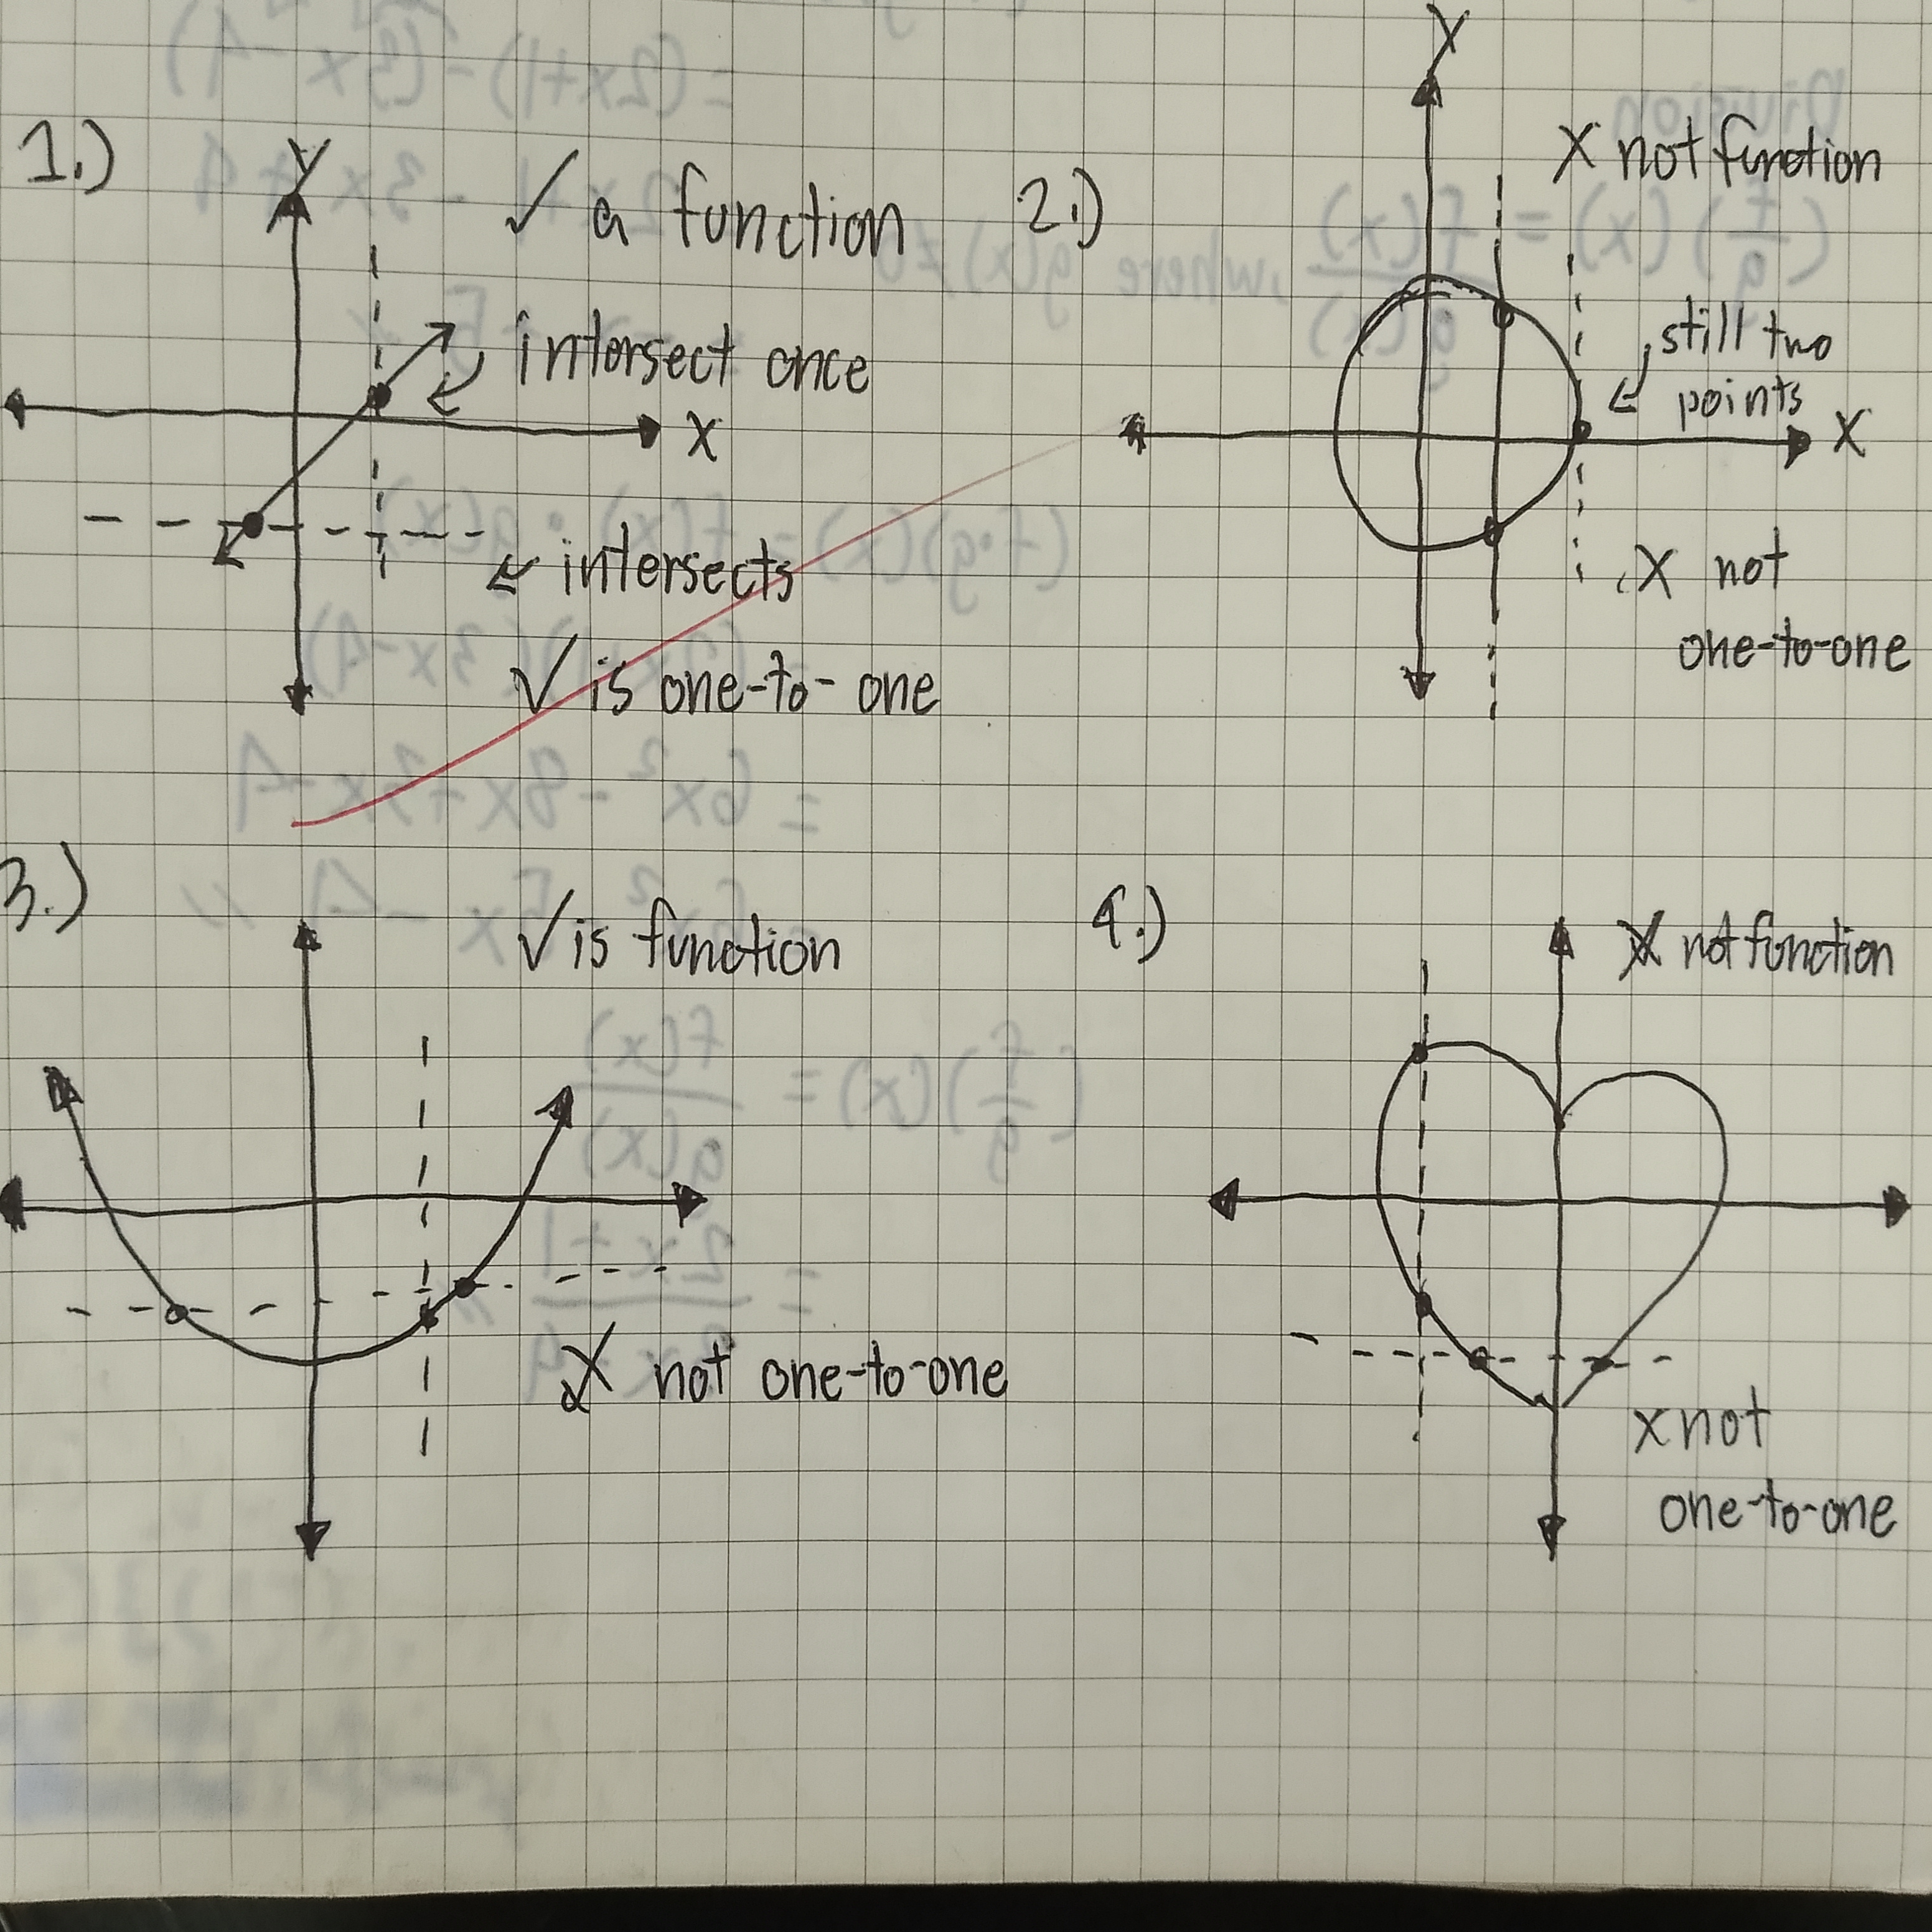 1.)
y
✓ a function
intersect once
x
intersects
✓ is one-to-one
2.)
y
X not function
still two
points
x
X not
one-to-one
3.)
✓ is function
X not one-to-one
4.)
X not function
x not
one-to-one